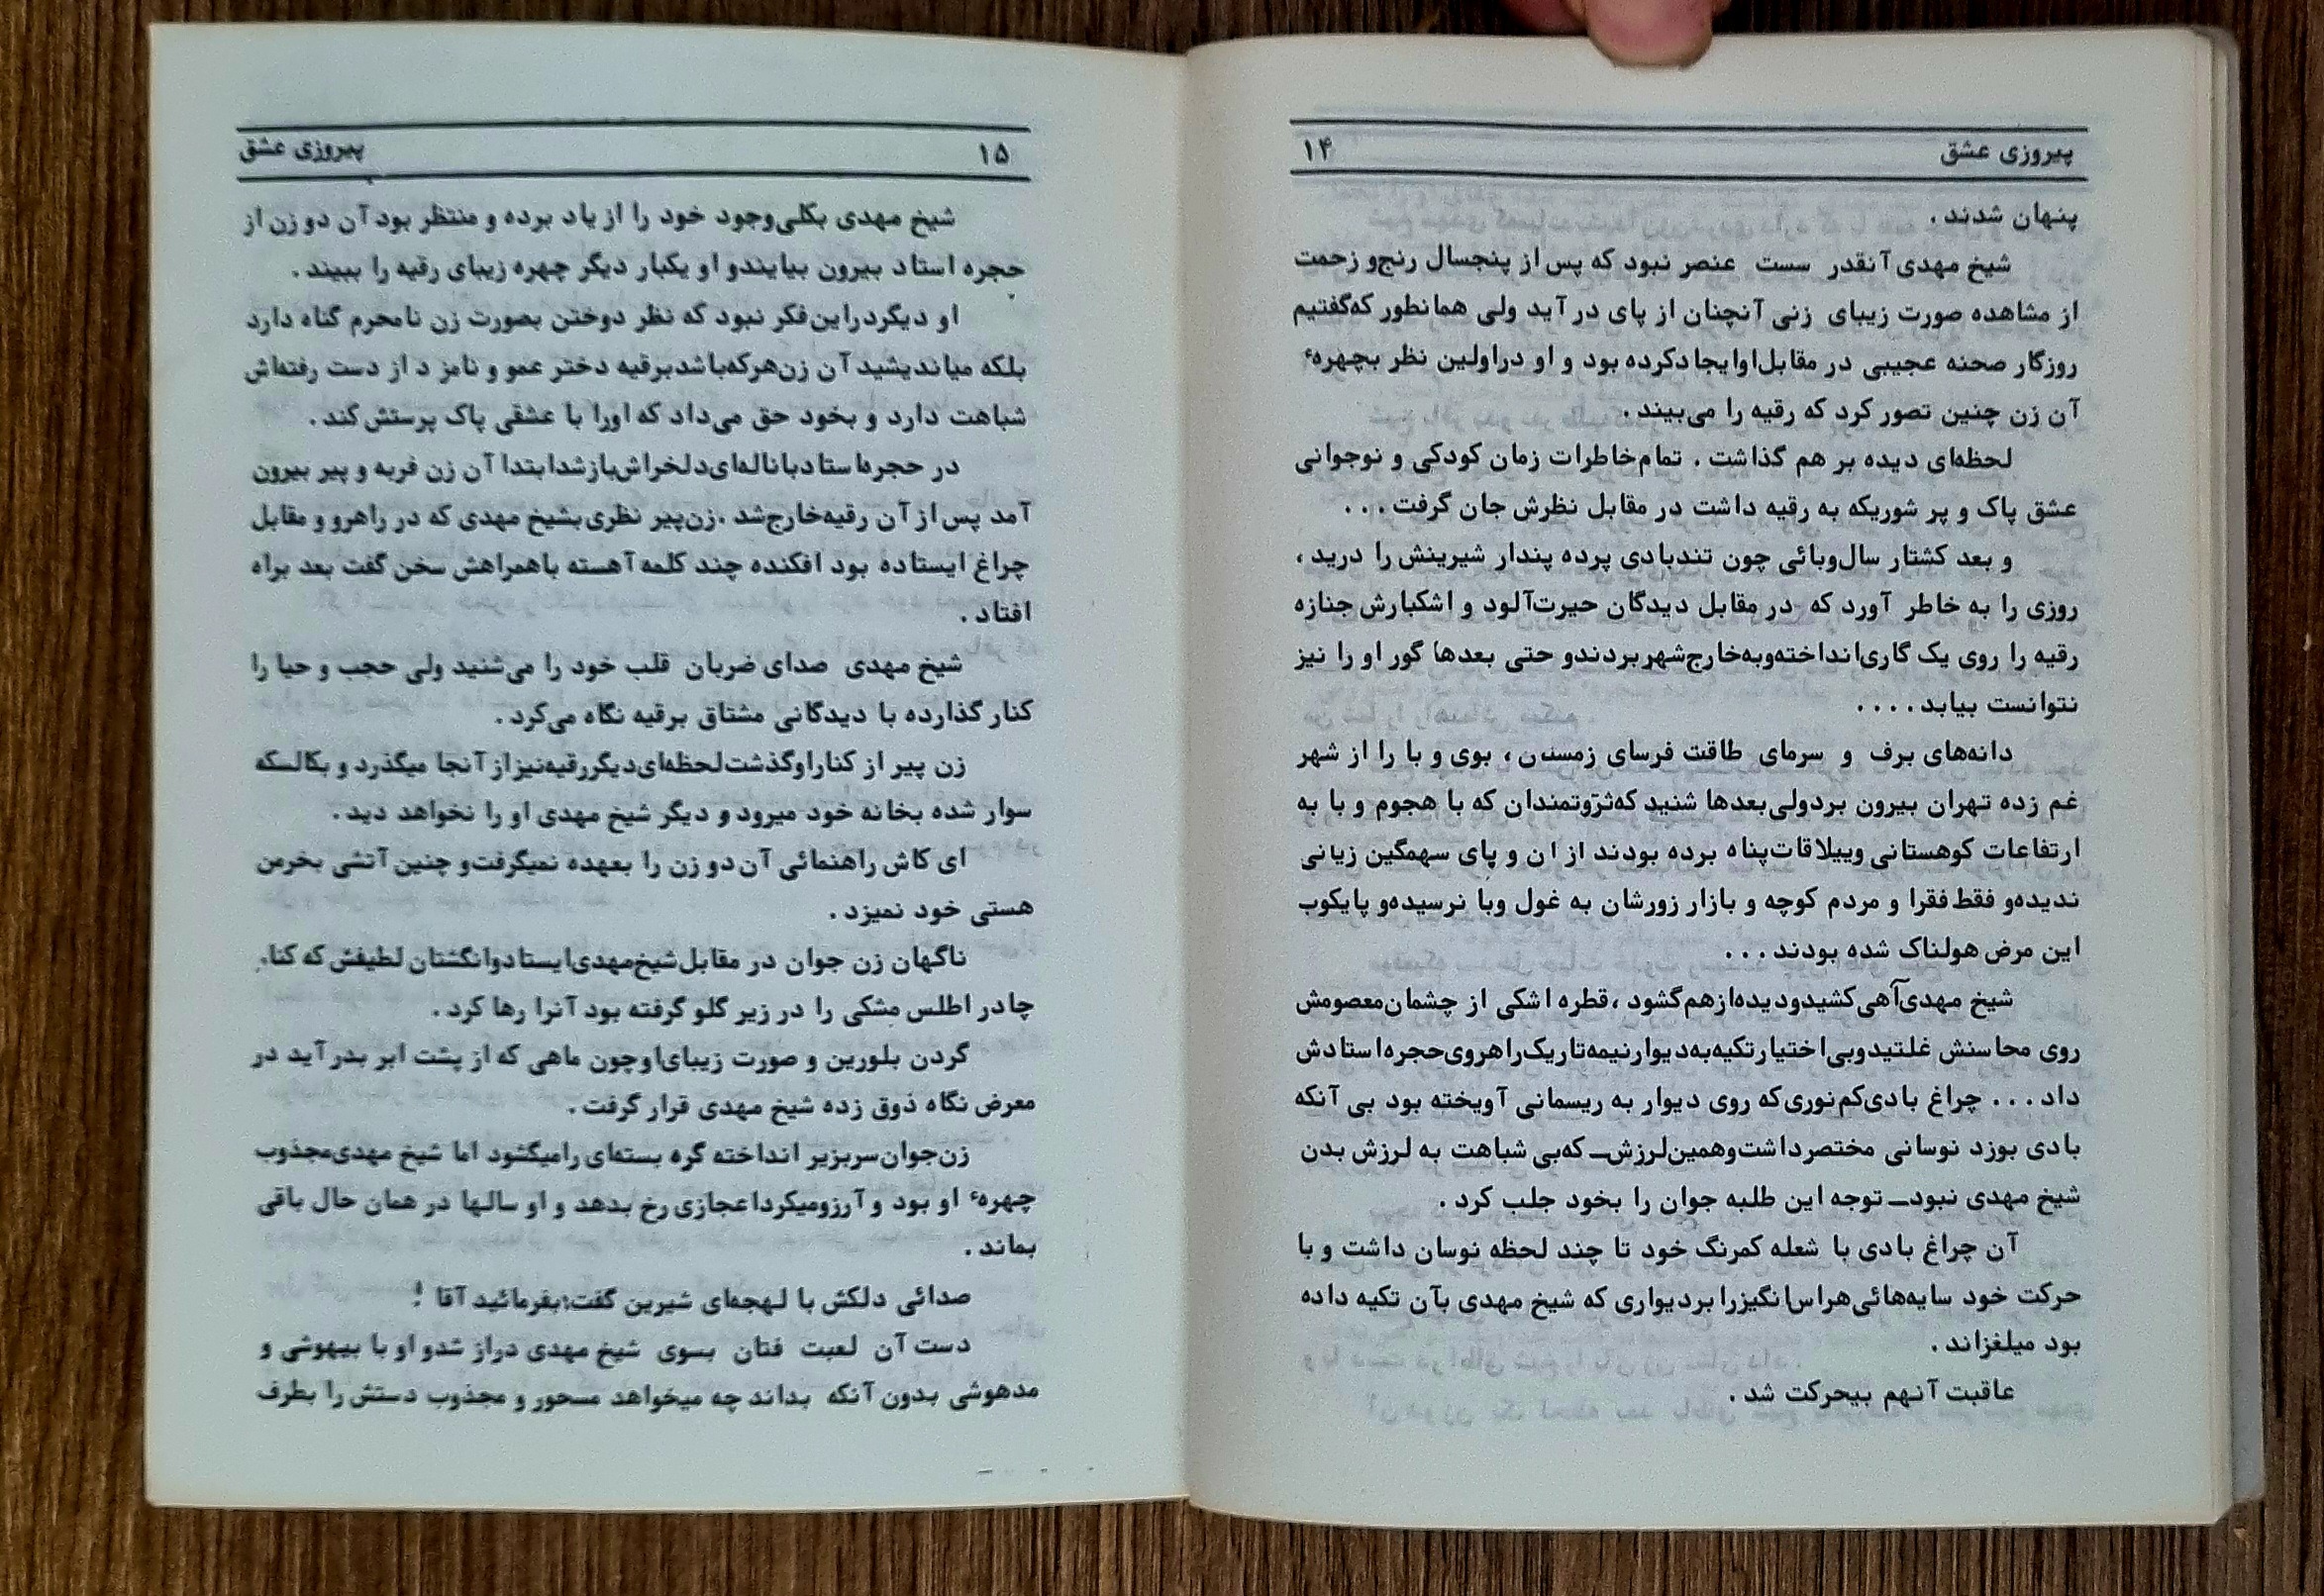 پیروزی عشق ۱۴
پنهان شدند .
شیخ مهدی آنقدر سست عنصر نبود که پس از پنجسال رنج و زحمت
از مشاهده صورت زیبای زنی آنچنان از پای در آید ولی همانطور که گفتیم
روزگار صحنه عجیبی در مقابل او ایجاد کرده بود و او در اولین نظر بچهرهٔ
آن زن چنین تصور کرد که رقیه را می‌بیند .
لحظه‌ای دیده بر هم گذاشت . تمام خاطرات زمان کودکی و نوجوانی
عشق پاک و پر شوریکه به رقیه داشت در مقابل نظرش جان گرفت . . .
و بعد کشتار سال وبائی چون تندبادی پرده پندار شیرینش را درید ،
روزی را به خاطر آورد که در مقابل دیدگان حیرت‌آلود و اشکبارش جنازه
رقیه را روی یک گاری انداخته و به خارج شهر بردند و حتی بعدها گور او را نیز
نتوانست بیابد . . . .
دانه‌های برف و سرمای طاقت فرسای زمستان ، بوی و با را از شهر
غم زده تهران بیرون برد ولی بعدها شنید که ثروتمندان که با هجوم و با به
ارتفاعات کوهستانی و ییلاقات پناه برده بودند از ان و پای سهمگین زیانی
ندیده و فقط فقرا و مردم کوچه و بازار زورشان به غول وبا نرسیده و پایکوب
این مرض هولناک شده بودند . . .
شیخ مهدی آهی کشید و دیده از هم گشود ، قطره اشکی از چشمان معصومش
روی محاسنش غلتید و بی اختیار تکیه به دیوار نیمه تاریک راهروی حجره استادش
داد . . . چراغ بادی کم نوری که روی دیوار به ریسمانی آویخته بود بی آنکه
بادی بوزد نوسانی مختصر داشت و همین لرزش ــ که بی شباهت به لرزش بدن
شیخ مهدی نبود ــ توجه این طلبه جوان را بخود جلب کرد .
آن چراغ بادی با شعله کمرنگ خود تا چند لحظه نوسان داشت و با
حرکت خود سایه‌هائی هراس انگیز را بر دیواری که شیخ مهدی بآن تکیه داده
بود میلغزاند .
عاقبت آنهم بیحرکت شد .
۱۵ پیروزی عشق
شیخ مهدی بکلی وجود خود را از یاد برده و منتظر بود آن دو زن از
حجره استاد بیرون بیایند و او یکبار دیگر چهره زیبای رقیه را ببیند .
او دیگر در این فکر نبود که نظر دوختن بصورت زن نامحرم گناه دارد
بلکه میاندیشید آن زن هر که باشد برقیه دختر عمو و نامز د از دست رفته‌اش
شباهت دارد و بخود حق می‌داد که او را با عشقی پاک پرستش کند .
در حجره استاد با ناله‌ای دلخراش باز شد ابتدا آن زن فربه و پیر بیرون
آمد پس از آن رقیه خارج شد . زن پیر نظری بشیخ مهدی که در راهرو و مقابل
چراغ ایستاده بود افکنده چند کلمه آهسته باهمراهش سخن گفت بعد براه
افتاد .
شیخ مهدی صدای ضربان قلب خود را می‌شنید ولی حجب و حیا را
کنار گذارده با دیدگانی مشتاق برقیه نگاه می‌کرد .
زن پیر از کنار او گذشت لحظه‌ای دیگر رقیه نیز از آنجا میگذرد و بکالسکه
سوار شده بخانه خود میرود و دیگر شیخ مهدی او را نخواهد دید .
ای کاش راهنمائی آن دو زن را بعهده نمیگرفت و چنین آتشی بخرمن
هستی خود نمیزد .
ناگهان زن جوان در مقابل شیخ مهدی ایستاد و انگشتان لطیفش که کنار
چادر اطلس مشکی را در زیر گلو گرفته بود آنرا رها کرد .
گردن بلورین و صورت زیبای او چون ماهی که از پشت ابر بدر آید در
معرض نگاه ذوق زده شیخ مهدی قرار گرفت .
زن جوان سر بزیر انداخته گره بسته‌ای را میگشود اما شیخ مهدی مجذوب
چهرهٔ او بود و آرزو میکرد اعجازی رخ بدهد و او سالها در همان حال باقی
بماند .
صدائی دلکش با لهجه‌ای شیرین گفت : بفرمائید آقا !
دست آن لعبت فتان بسوی شیخ مهدی دراز شد و او با بیهوشی و
مدهوشی بدون آنکه بداند چه میخواهد مسحور و مجذوب دستش را بطرف